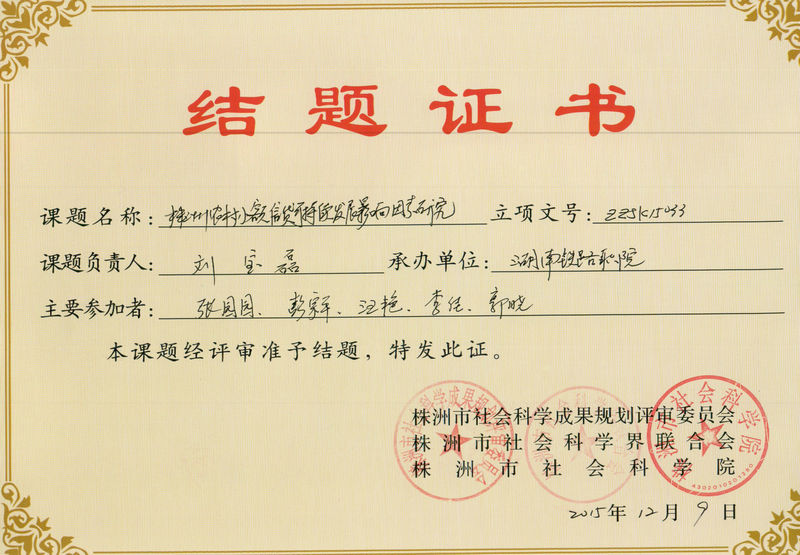 结题证书
课题名称：株洲农村小额信贷可持续发展影响因素研究 立项文号：ZZSK15033
课题负责人：刘宝磊 承办单位：湖南铁路职院
主要参加者：张园园、彭宗祥、汪艳、李佳、郭晓
本课题经评审准予结题，特发此证。
株洲市社会科学成果规划评审委员会
株洲市社会科学界联合会
株洲市社会科学院
株洲市社会科学院
4302010201280
2015年12月9日